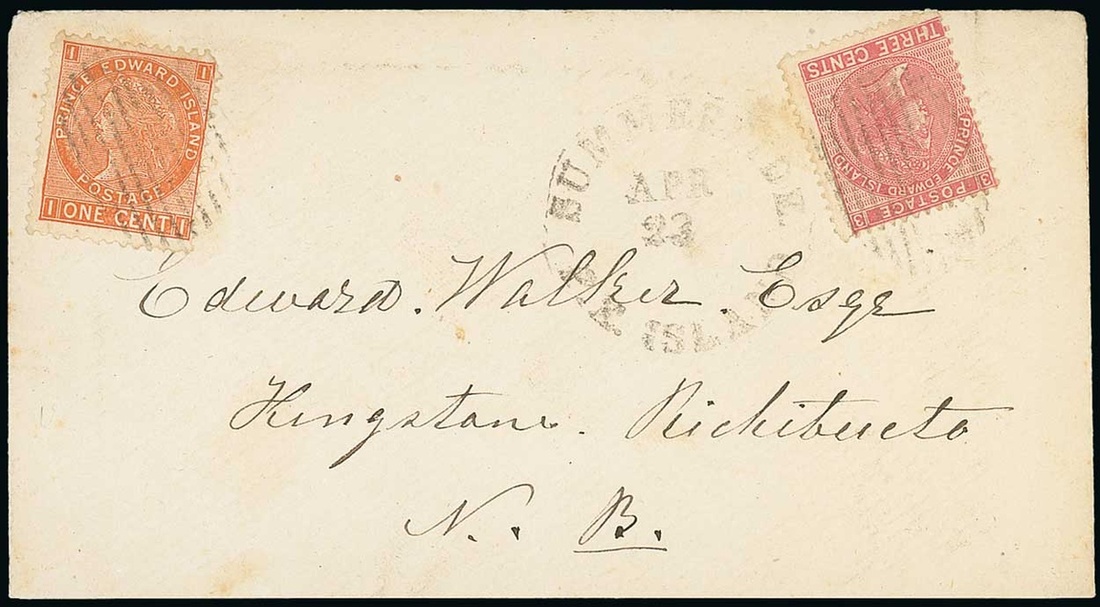 PRINCE EDWARD ISLAND
POSTAGE
1 ONE CENT 1
1 1
THREE CENTS
PRINCE EDWARD ISLAND
3 POSTAGE 3
APR
23
ISLAND
Edward. Walker. Esqr
Kingston. Richibucto
N. B.